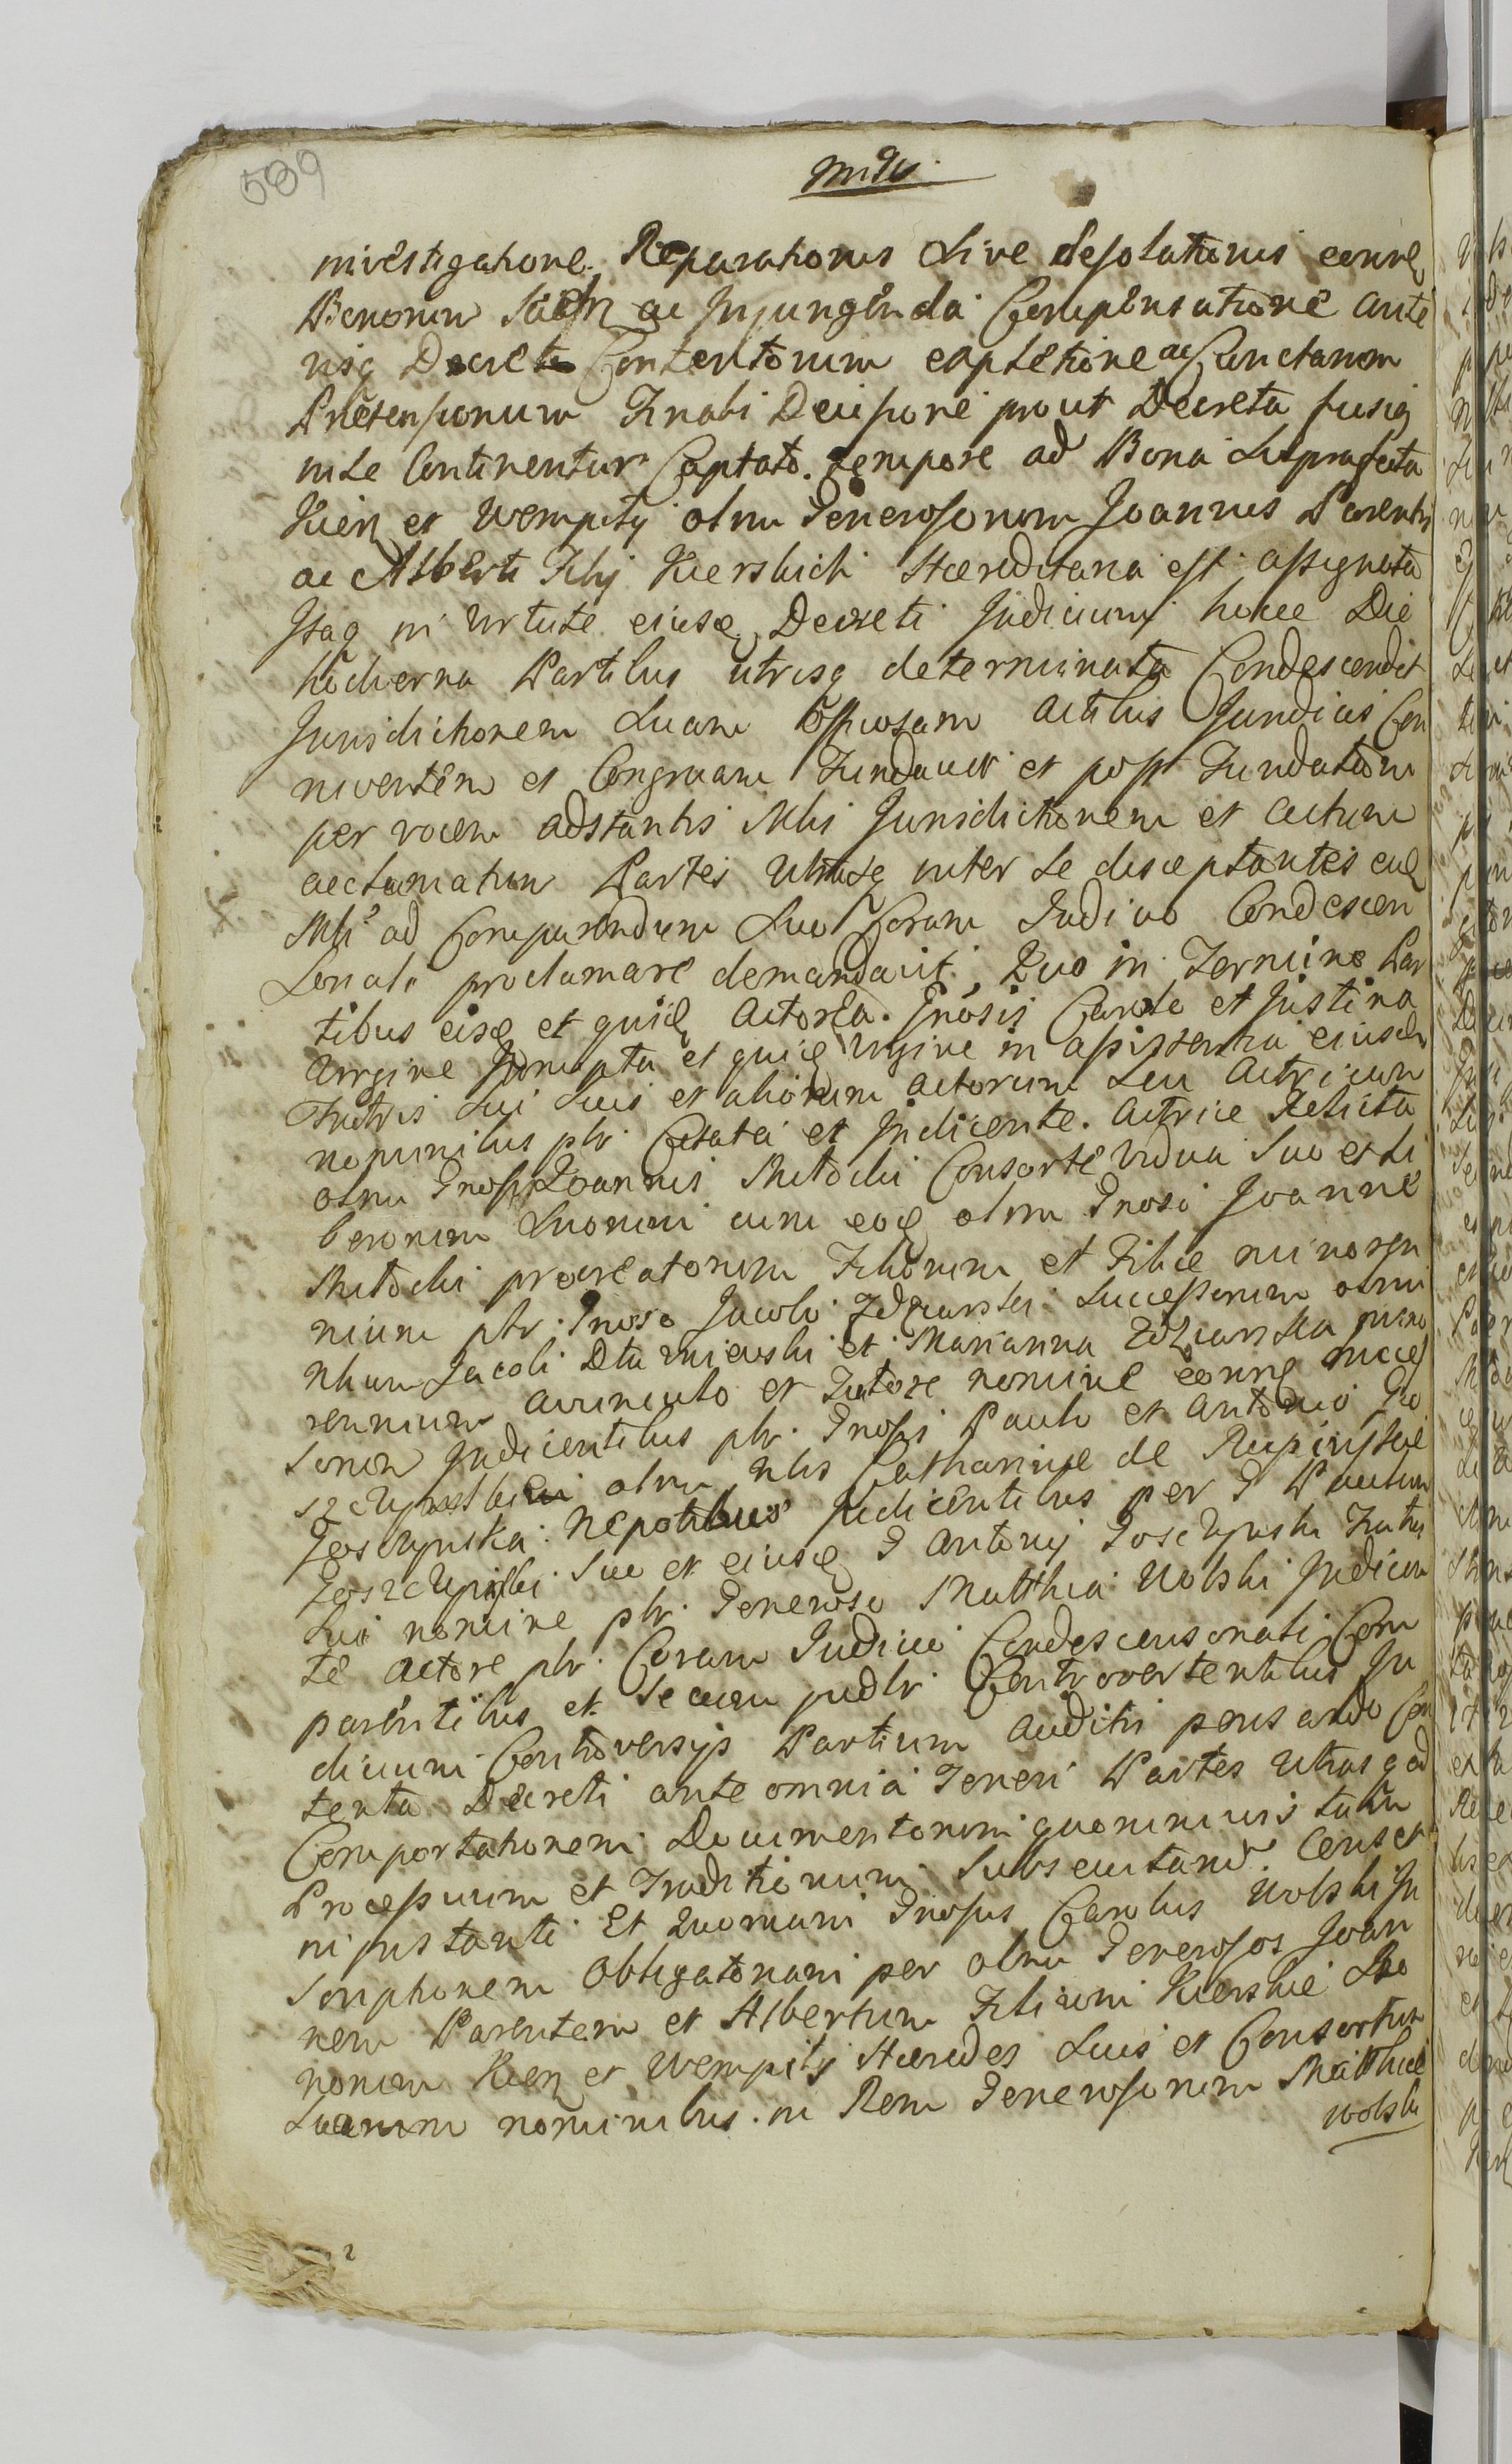 589
investigatione Reparationis sive desolationis eorund
Bonorum Kien ac Injungenda Compensatione ante
risq Decreto Contentorum expletione ac Cunctarum
Praetensionum Finali Decisione prout Decreta fusiq
in se Continentur Captato tempore ad Bona Suprafata
Kien et Wempity olim Generosorum Joannis Parentis
ac Alberti Filij Kierskich Haereditaria est assignata
Itaq in Virtute eiusd Decreti Judicium hocce Die
hodierna Partibus utrisq determinata Condescendit
Jurisdictionem Suam Officiosam actibus Juridicis Con
niventem et Congruam Fundavit et post Fundatam
per vocem adstantis Mlis Jurisdictionem et actum
acclamatum Partes Utrasq inter se disceptantes eud
Mli ad Comparendum Suo Coram Judicio Condescen
sorali proclamare demandavit. Quo in Termino Par
tibus eisd et quid Actorea Gnosis Carolo et Justina
Virgine in assistentia eiusd
Fratris Sui Suis et aliorum Actorum Seu Actricum
nominibus ptr Citata et Judicente Actrice Relicta
olim Gnosi Joannis Mitocki Consorte vidua Suo et Li
berorum Suorum cum eod olim Gnoso Joanne
Mitocki procreatorum Filiorum et Filiae minoren
nium ptr Gnoso Jacobo Zdziarski Successorum olim
Jacobi et Marianna Zdziarska mino
rennium avunculo et Tutore nomine eorund Succes
sorum Judicentibus ptr Gnosis Paulo et Antonio Go
olim Mlis Catharinae de
Nepotibus Judicentibus per G Paulum
Suo et eiusd G Antonij Fratris
Sui nomine ptr Generoso Matthia Wolski Judicen
te Actore ptr Coram Judicio Condescensorali Com
parentibus et Secum judlr Controvertentibus Ju
dicium Controversijs Partium auditis pensando Con
tenta Decreti ante omnia Teneri Partes Utrasq ad
Comportationem Documentorum quorumvis tum
Processuum et Traditionum Censet
in instanti Et Quoniam Gnosus Carolus Wolski In
scriptionem Obligatoriam per olim Generosos Joan
nem Parentem et Albertum Filium Kierskie Bo
norum Kien et Wempity Haeredes Suis et Consortum
Suarum nominibus in Rem Generosorum Matthiae
Wolski